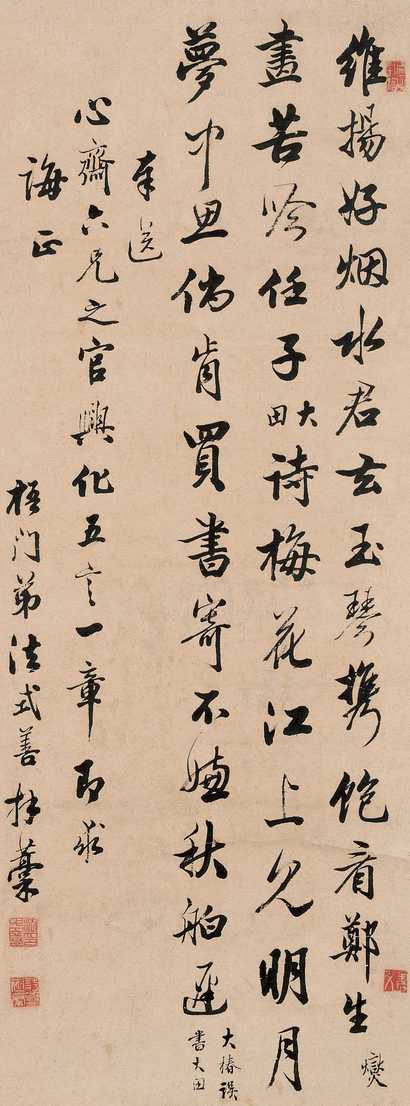 維揚好烟水君去玉琴携飽看鄭生燮
畫苦吟任子大田詩梅花江上見明月
夢中思倘肯買書寄不嫌秋舶遲大椿誤書大田
奉送
心齋六兄之官興化五言一章即求
誨正
梧門弟法式善拜藁